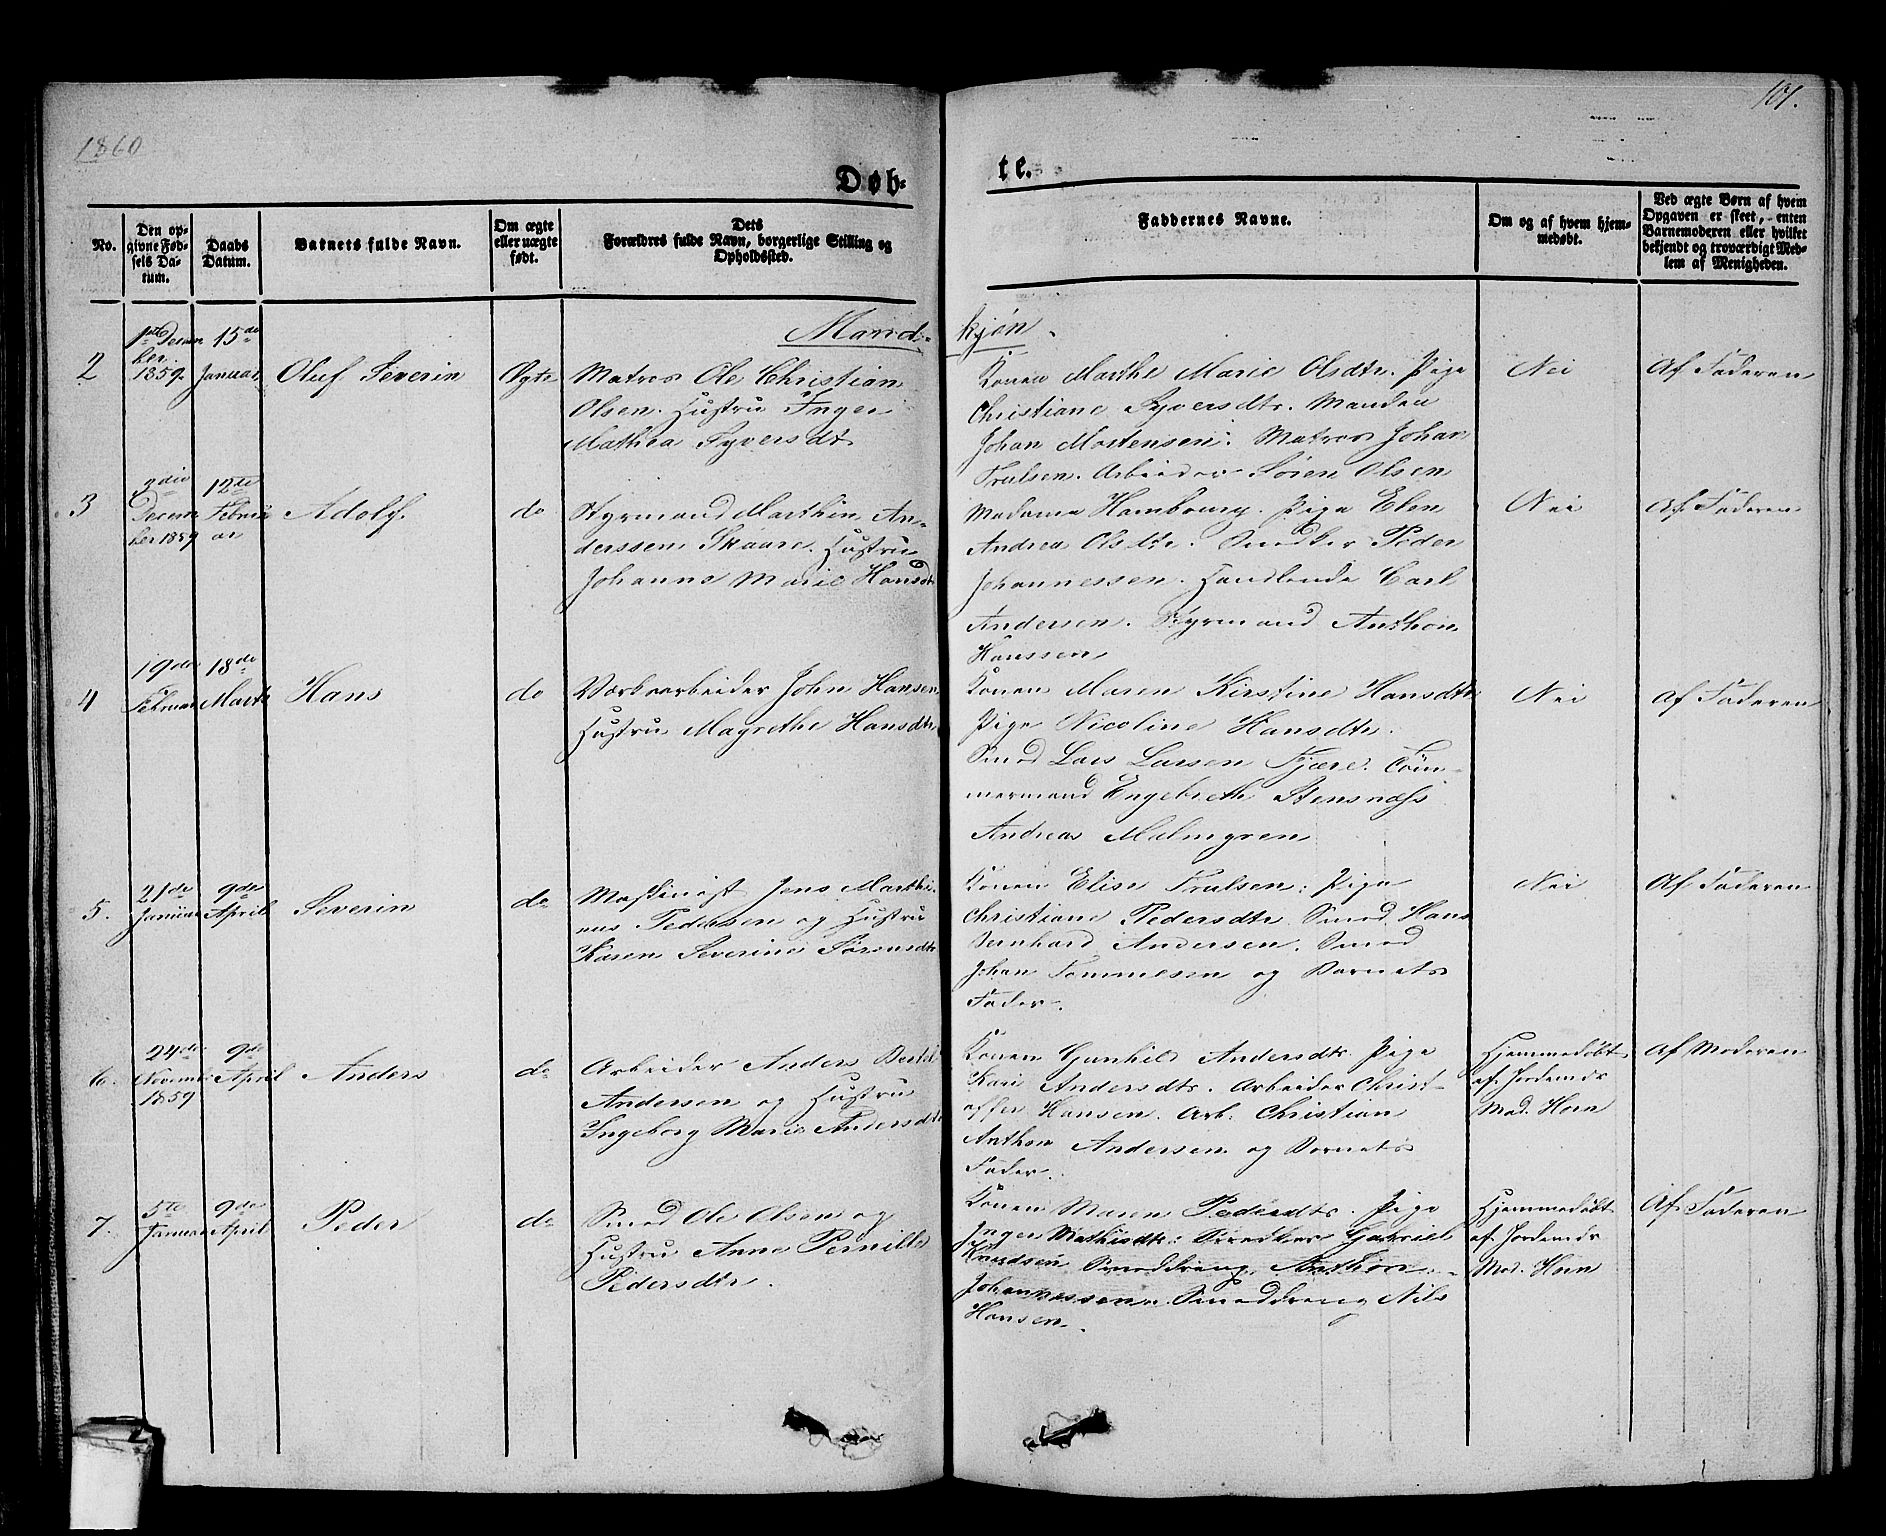 1860
101.
Døb-
te.
No.
Den op-
givne Fød-
sels Da-
tum.
Daabs
Datum.
Barnets fulde Navn.
Om ægte
eller uægte
født.
Dets
Forældres fulde Navn, borgerlige Stilling og
Opholdssted.
Faddernes Navne.
Om og af hvem hjem-
medøbt.
Ved ægte Børn af hvem
Opgaven er skeet, enten
Barnemoderen eller hvilket
bekjendt og troværdigt Med-
lem af Menigheden.
Mand-
kjøn.
2
1ste Decem
ber
1859
15de
Januar
Oluf Severin
Ægte
Matros Ole Christian
Olsen. Hustru Inger
Mathea Syversdtr
Konen Marthe Marie Olsdtr. Pige
Christiane Syversdtr. Manden
Johan Mortensen. Matros Johan
Trulsen. Arbeider Søren Olsen
Nei
Af Faderen
3
3die
Decem
ber 1859
12te
Febru
ar
Adolf.
do
Styrmand Marthin An-
derssen Skaare. Hustru
Johanne Marie Hansdtr
Madame Hambourg. Pige Elen
Andrea Olsdtr. Snedker Peder
Johannessen. Handlende Carl
Andersen. Styrmand Anthon
Hanssen
Nei
Af Faderen
4
19de
Februar
18de
Marts
Hans
do
Værksarbeider John Hansen
Hustru Magrethe Hansdtr.
Konen Maren Kirstine Hansdtr
Pige Nicoline Hansdtr.
Smed Lars Larsen Fjære. Tøm-
mermand Engebreth Stensnæss
Andreas Malmgren
Nei
Af Faderen
5.
21de
Januar
9de
April
Severin
do
Maskinist Jens Marthi-
nus Pedersen og Hustru
Karen Severine Sørensdtr
Konen Elise Trulsen. Pige
Christiane Pedersdtr. Smed Hans
Bernhard Andersen. Smed
Johan Tommesen og Barnets
Fader.
Nei
Af Faderen
6.
24de
Novemb
1859
9de
April
Anders
do
Arbeider Anders Bertel
Andersen og Hustru
Ingeborg Marie Andersdtr
Konen Gunhild Andersdtr. Pige
Kari Andersdtr. Arbeider Christ-
offer Hansen. Arb. Christian
Anthon Andersen og Barnets
Fader.
Hjemmedøbt
af Jordemdr
Mad. Horn
Af Moderen
7.
5te
Januar
9de
April
Peder
do
Smed Ole Olsen og
Hustru Anne Pernille
Pedersdtr.
Konen Maren Pedersdtr. Pige
Inger Mathisdtr. Snedker Gabriel
Knudsen Smeddreng Anthon
Johannessen. Smeddreng Nils
Hansen.
Hjemmedøbt
af Jordemdr
Mad. Horn
Af Faderen